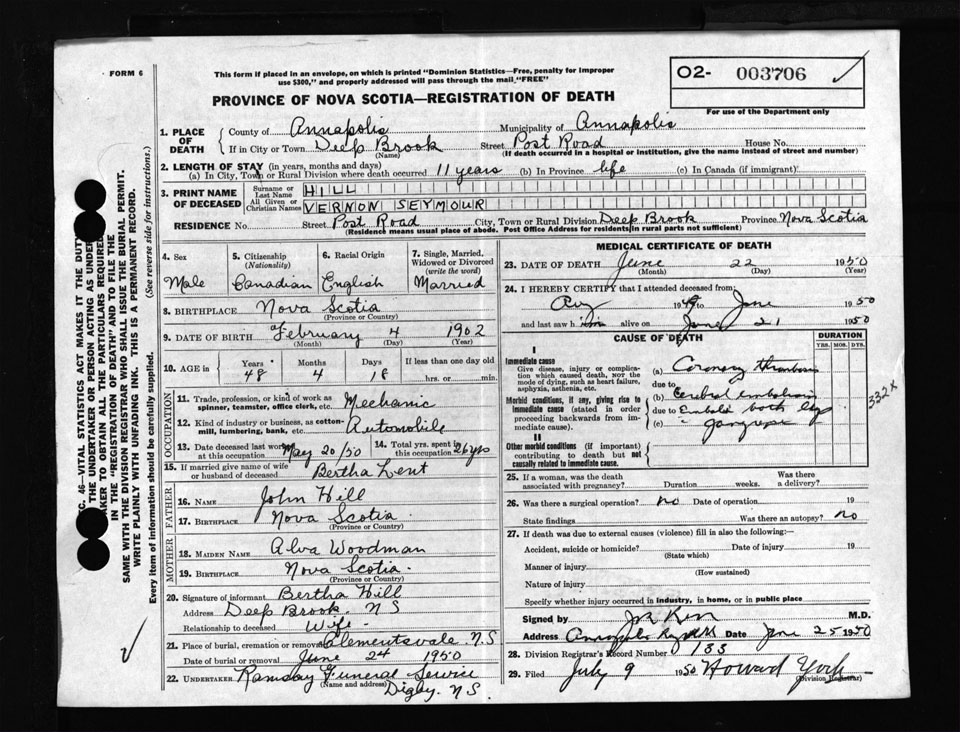 FORM 6
This form if placed in an envelope, on which is printed "Dominion Statistics—Free, penalty for improper
use $300," and properly addressed will pass through the mail "FREE"
O2- 003706
For use of the Department only
PROVINCE OF NOVA SCOTIA—REGISTRATION OF DEATH
1. PLACE OF DEATH
County of Annapolis Municipality of Annapolis
If in City or Town Deep Brook Street Post Road House No.
(Name) (If death occurred in a hospital or institution, give the name instead of street and number)
2. LENGTH OF STAY (in years, months and days)
(a) In City, Town or Rural Division where death occurred 11 years (b) In Province life (c) In Canada (if immigrant)
3. PRINT NAME OF DECEASED
Surname or Last Name HILL
All Given or Christian Names VERNON SEYMOUR
RESIDENCE No. Street Post Road City, Town or Rural Division Deep Brook Province Nova Scotia
(Residence means usual place of abode. Post Office Address for residents in rural parts not sufficient)
4. Sex
Male
5. Citizenship
(Nationality)
Canadian
6. Racial Origin
English
7. Single, Married, Widowed or Divorced
(write the word)
Married
8. BIRTHPLACE Nova Scotia
(Province or Country)
9. DATE OF BIRTH February 4 1902
(Month) (Day) (Year)
10. AGE in Years Months Days If less than one day old
48 4 18 hrs. or min.
OCCUPATION
11. Trade, profession, or kind of work as
spinner, teamster, office clerk, etc. Mechanic
12. Kind of industry or business, as cotton-
mill, lumbering, bank, etc. Automobile
13. Date deceased last worked
at this occupation May 20/50
14. Total yrs. spent
in this occupation 26 yrs
15. If married give name of wife
or husband of deceased Bertha Lent
FATHER
16. NAME John Hill
17. BIRTHPLACE Nova Scotia
(Province or Country)
MOTHER
18. MAIDEN NAME Alva Woodman
19. BIRTHPLACE Nova Scotia.
(Province or Country)
20. Signature of informant Bertha Hill
Address Deep Brook. N S
Relationship to deceased Wife
21. Place of burial, cremation or removal Clementsvale N.S
Date of burial or removal June 24 1950
22. UNDERTAKER Ramsay Funeral Service
(Name and address) Digby. N S.
MEDICAL CERTIFICATE OF DEATH
23. DATE OF DEATH June 22 1950
(Month) (Day) (Year)
24. I HEREBY CERTIFY that I attended deceased from:
1949 to June 1950
and last saw him alive on June 21 1950
CAUSE OF DEATH
DURATION
YRS. MOS. DYS.
I
Immediate cause
Give disease, injury or complica-
tion which caused death, NOT the
mode of dying, such as heart failure,
asphyxia, asthenia, etc.
(a) Coronary thrombosis
due to
Morbid conditions, if any, giving rise to
immediate cause (stated in order
proceeding backwards from im-
mediate cause).
(b) Cerebral embolism
due to Emboli both legs
(c) - gangrene
332X
II
Other morbid conditions (if important)
contributing to death but not
causally related to immediate cause.
25. If a woman, was the death
associated with pregnancy? Duration weeks.
Was there
a delivery?
26. Was there a surgical operation? no Date of operation 19
State findings Was there an autopsy? no
27. If death was due to external causes (violence) fill in also the following:—
Accident, suicide or homicide? Date of injury 19
(State which)
Manner of injury
(How sustained)
Nature of injury
Specify whether injury occurred in industry, in home, or in public place
Signed by M.D.
Address Annapolis Royal NS Date June 25 1950
28. Division Registrar's Record Number 133
29. Filed July 9 1950 Howard York
(Division Registrar)
SEC. 46—VITAL STATISTICS ACT MAKES IT THE DUTY
THE UNDERTAKER OR PERSON ACTING AS UNDER
TAKER TO OBTAIN ALL THE PARTICULARS REQUIRED
IN THE "REGISTRATION OF DEATH" AND TO FILE THE
SAME WITH THE DIVISION REGISTRAR WHO SHALL ISSUE THE BURIAL PERMIT.
WRITE PLAINLY WITH UNFADING INK. THIS IS A PERMANENT RECORD.
Every item of information should be carefully supplied. (See reverse side for instructions.)